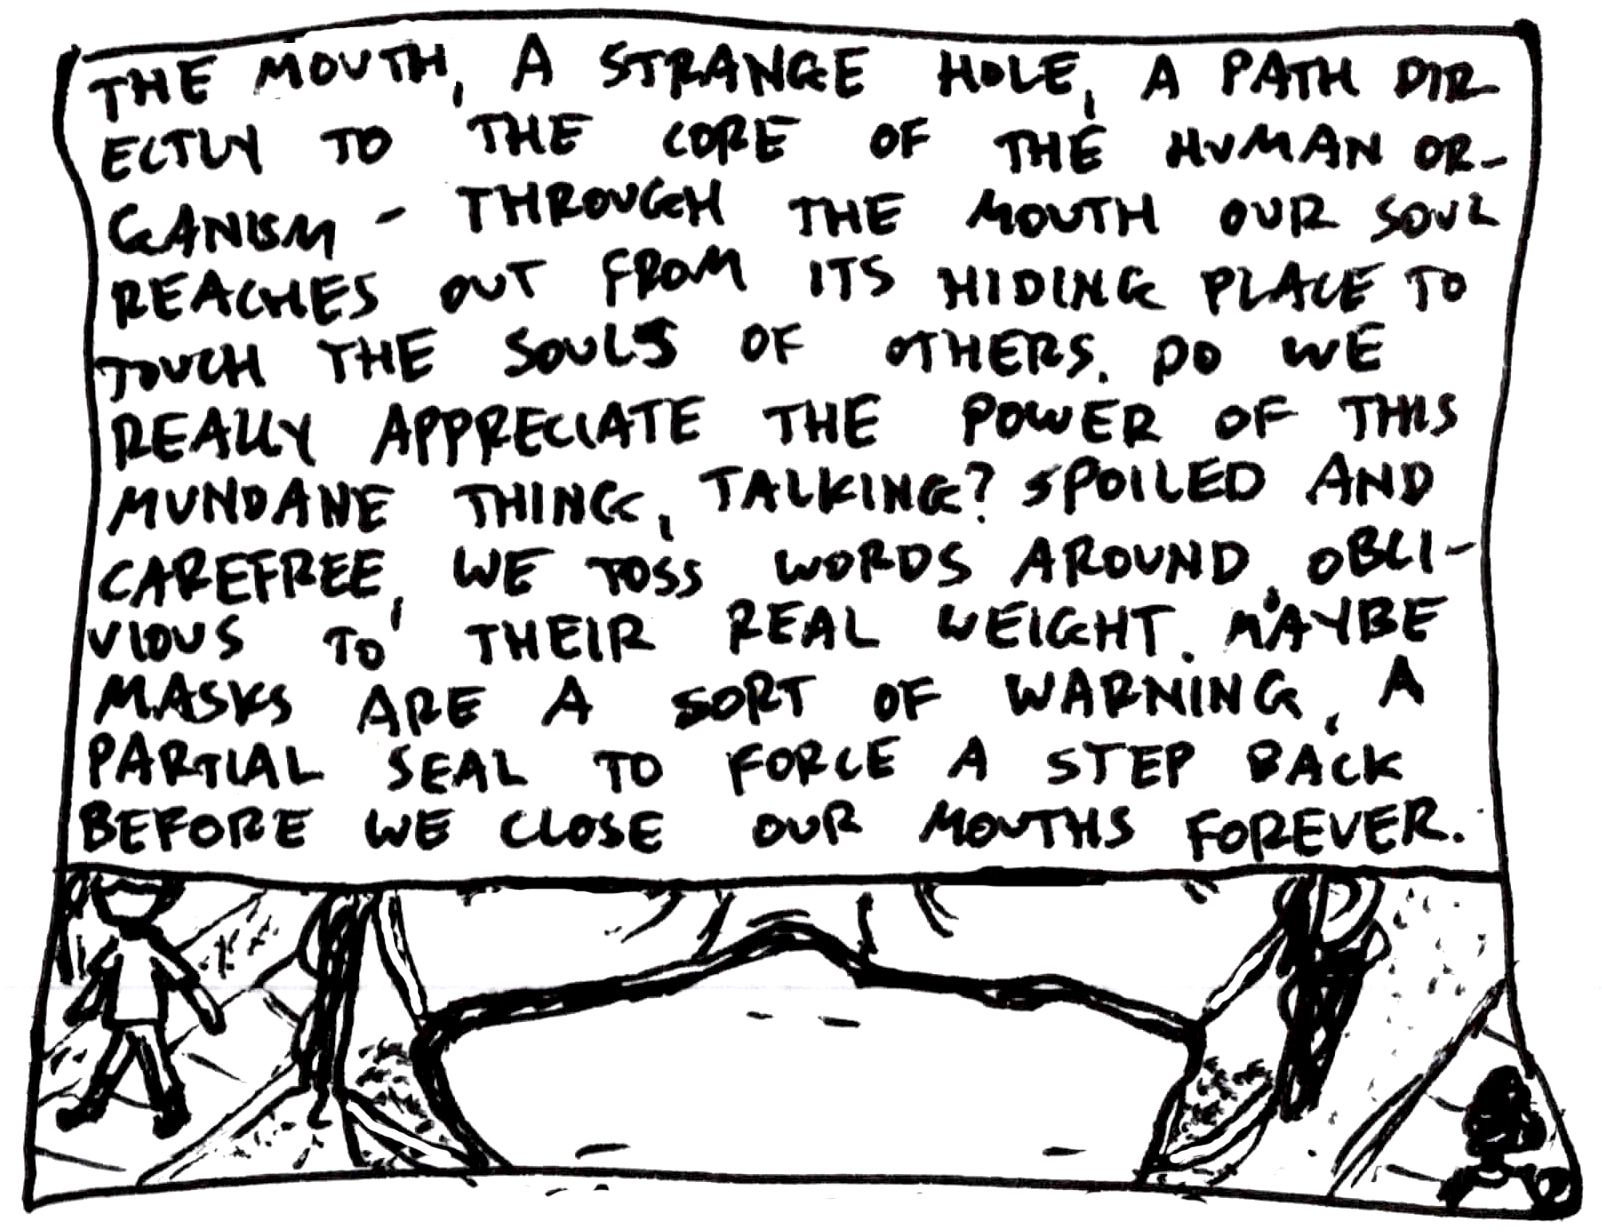 THE MOUTH, A STRANGE HOLE, A PATH DIR
ECTLY TO THE CORE OF THE HUMAN OR-
GANISM - THROUGH THE MOUTH OUR SOUL
REACHES OUT FROM ITS HIDING PLACE TO
TOUCH THE SOULS OF OTHERS. DO WE
REALLY APPRECIATE THE POWER OF THIS
MUNDANE THING, TALKING? SPOILED AND
CAREFREE, WE TOSS WORDS AROUND, OBLI-
VIOUS TO THEIR REAL WEIGHT. MAYBE
MASKS ARE A SORT OF WARNING, A
PARTIAL SEAL TO FORCE A STEP BACK
BEFORE WE CLOSE OUR MOUTHS FOREVER.